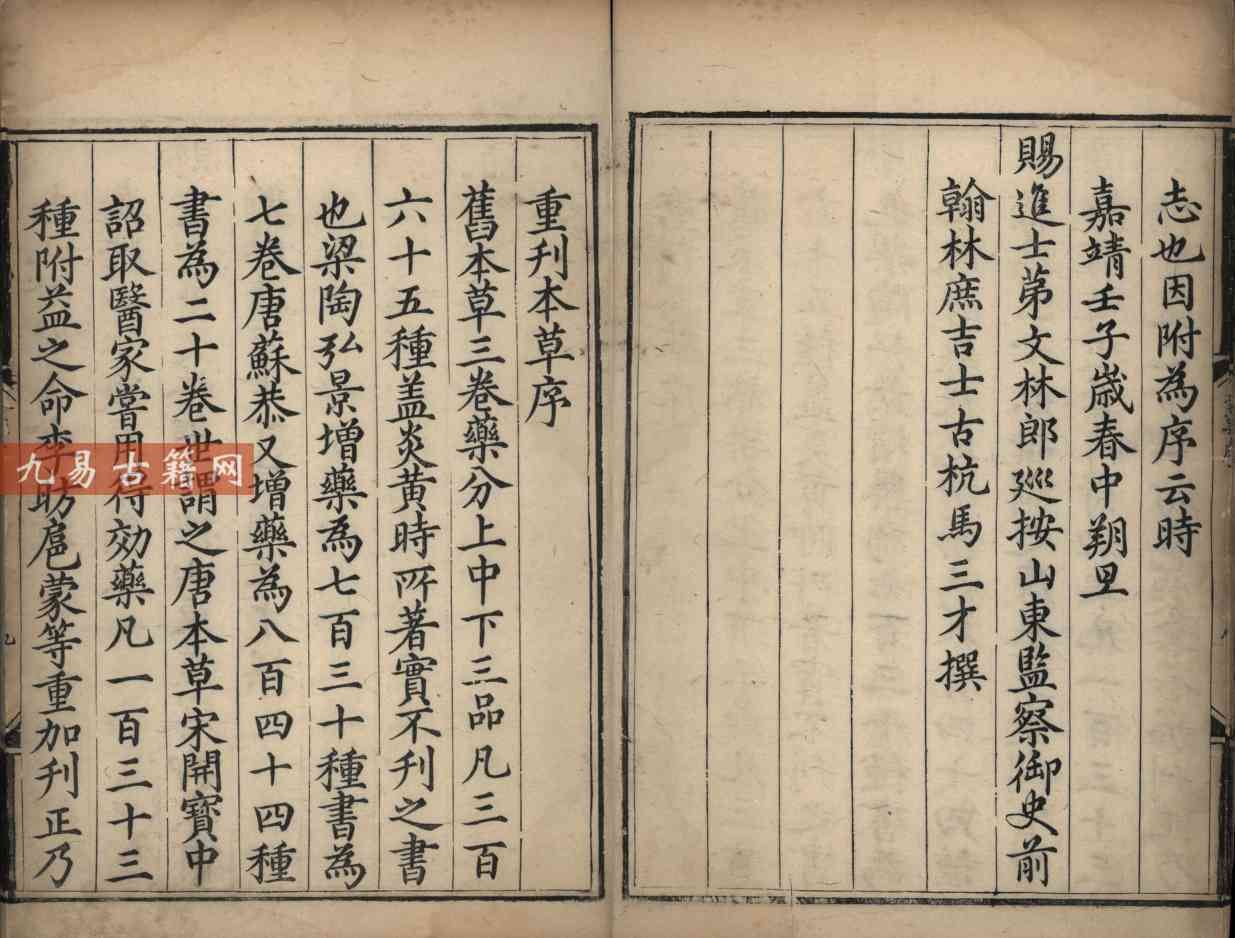 志也因附為序云時
嘉靖壬子歲春中朔旦
賜進士第文林郎廵按山東監察御史前
翰林庶吉士古杭馬三才撰
重刋本草序
舊本草三卷藥分上中下三品凡三百
六十五種盖炎黄時所著實不刋之書
也梁陶弘景増藥為七百三十種書為
七卷唐蘇恭又増藥為八百四十四種
書為二十卷世謂之唐本草宋開寳中
詔取醫家嘗用得効藥凡一百三十三
種附益之命李昉扈蒙等重加刋正乃
九易古籍网